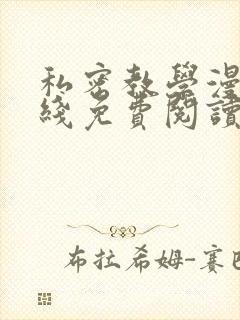 私密教學漫
綫免費閱讀
布拉希姆-賽巴